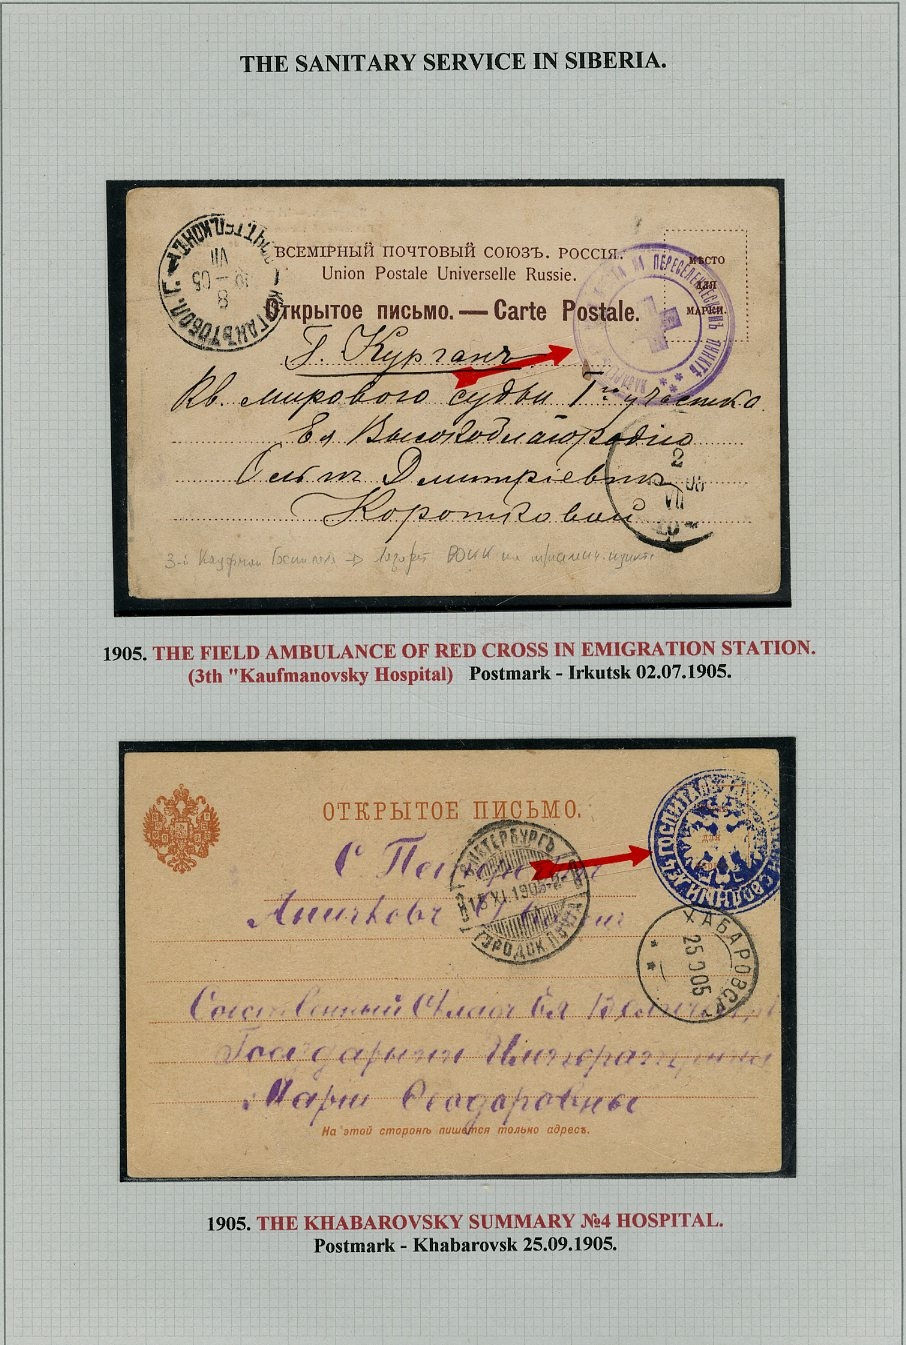 THE SANITARY SERVICE IN SIBERIA.
ВСЕМІРНЫЙ ПОЧТОВЫЙ СОЮЗЪ. РОССІЯ.
Union Postale Universelle Russie.
Открытое письмо. — Carte Postale.
МѢСТО
ДЛЯ
МАРКИ.
НА ПЕРЕСЕЛЕНЧЕСКОМЪ ПУНКТѢ
8
VII
05
Г. Курганъ
Кв. мирового судьи 1го участка
Ея Высокоблагородію
Ольгѣ Дмитріевнѣ
Коротковой
2
VII
05
3-й Кауфман Госпиталь → Лазарет РОКК на
1905. THE FIELD AMBULANCE OF RED CROSS IN EMIGRATION STATION.
(3th "Kaufmanovsky Hospital) Postmark - Irkutsk 02.07.1905.
ОТКРЫТОЕ ПИСЬМО.
ГОСПИТАЛЬ СВОДНЫЙ
С.ПЕТЕРБУРГЪ
ГОРОДСК. ПОЧТА
С Петербургъ
Аничковъ
ХАБАРОВСКЪ
25 9 05
Собственный Ея
Государыни Императрицы
Маріи Ѳеодоровны
На этой сторонѣ пишется только адресъ.
1905. THE KHABAROVSKY SUMMARY №4 HOSPITAL.
Postmark - Khabarovsk 25.09.1905.